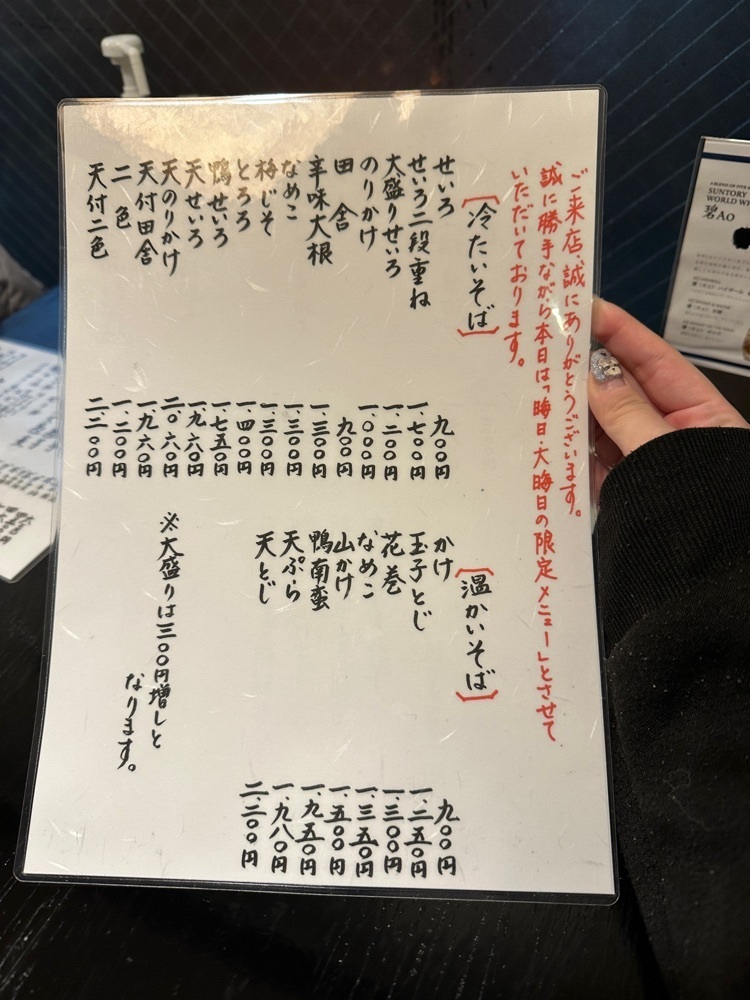 ご来店、誠にありがとうございます。
誠に勝手ながら本日は「晦日・大晦日の限定メニュー」とさせて
いただいております。
[冷たいそば]
せいろ 九〇〇円
せいろ二段重ね 一、七〇〇円
大盛りせいろ 一、二〇〇円
のりかけ 一、〇〇〇円
田舎 九〇〇円
辛味大根 一、三〇〇円
なめこ 一、三〇〇円
梅じそ 一、三〇〇円
とろろ 一、四〇〇円
鴨せいろ 一、七五〇円
天せいろ 一、九六〇円
天のりかけ 二、〇六〇円
天付田舎 一、九六〇円
二色 一、二〇〇円
天付二色 二、二〇〇円
[温かいそば]
かけ 九〇〇円
玉子とじ 一、二五〇円
花巻 一、三〇〇円
なめこ 一、三五〇円
山かけ 一、五〇〇円
鴨南蛮 一、九五〇円
天ぷら 一、九八〇円
天とじ 二、二〇〇円
※大盛りは三〇〇円増しと
なります。
SUNTORY
WORLD WH
碧Ao